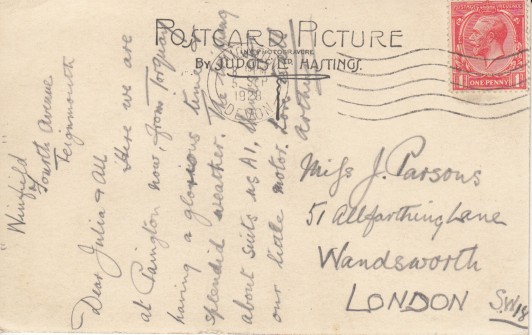 POSTCARD PICTURE
IN PHOTOGRAVURE
BY JUDGES LTD HASTINGS.
1928
DEVON
POSTAGE REVENUE
ONE PENNY
"Winfield"
Fourth Avenue
Teignmouth
Dear Julia & All
Here we are
at Paington now, from Torquay
having a glorious time &
splendid weather. The
about suits us A1,
our little motor. Love
Arthur
Miss J. Parsons
51 Allfarthing Lane
Wandsworth
LONDON S.W.18